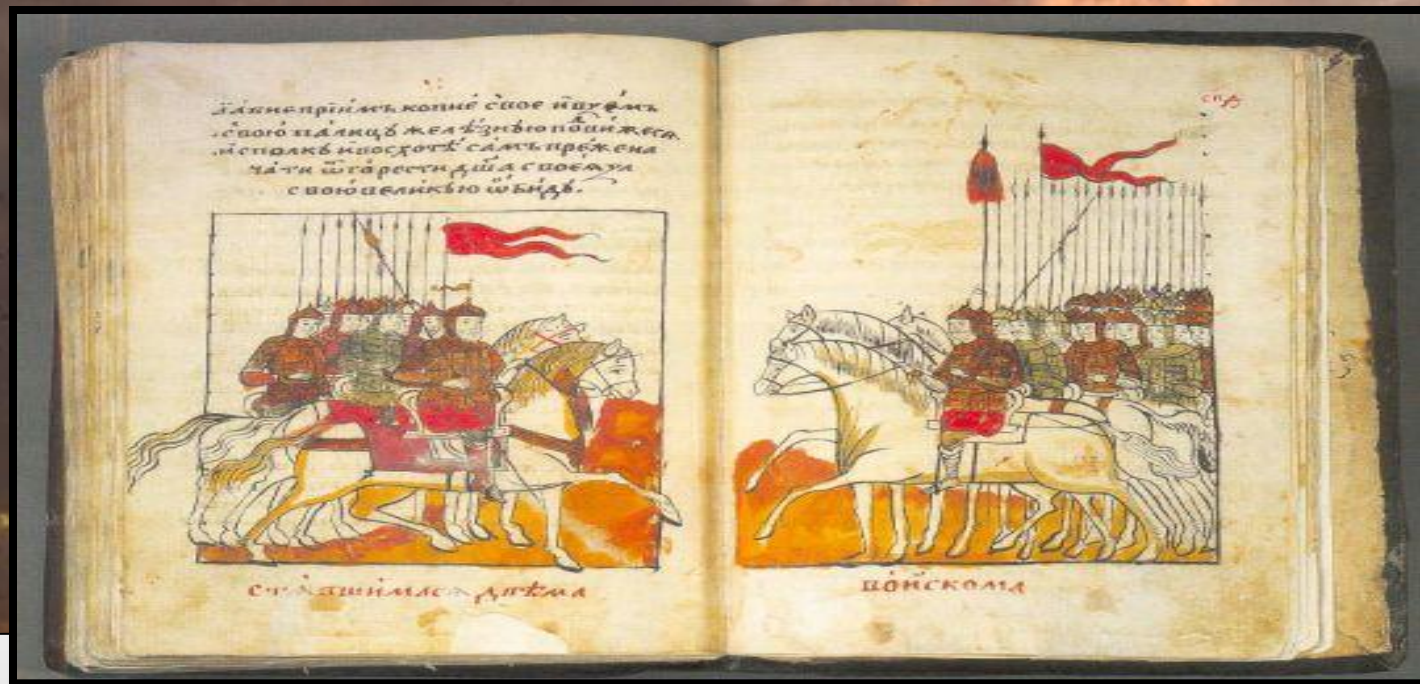 прїи́мъ копиѐ своѐ и҆вꙁе́мъ
свою̀ па́лицꙋ желѣ́знꙋю подви́жесѧ
исполкꙋ̀ ивосхотѣ̀ са́мъ пре́жена
ча́ти ѿго́рести дш҃а своеѧ̀
свою̀ вели́кꙋю ѡ҆би́дꙋ.
ста́вшимасѧ двѣ́ма
во́искома